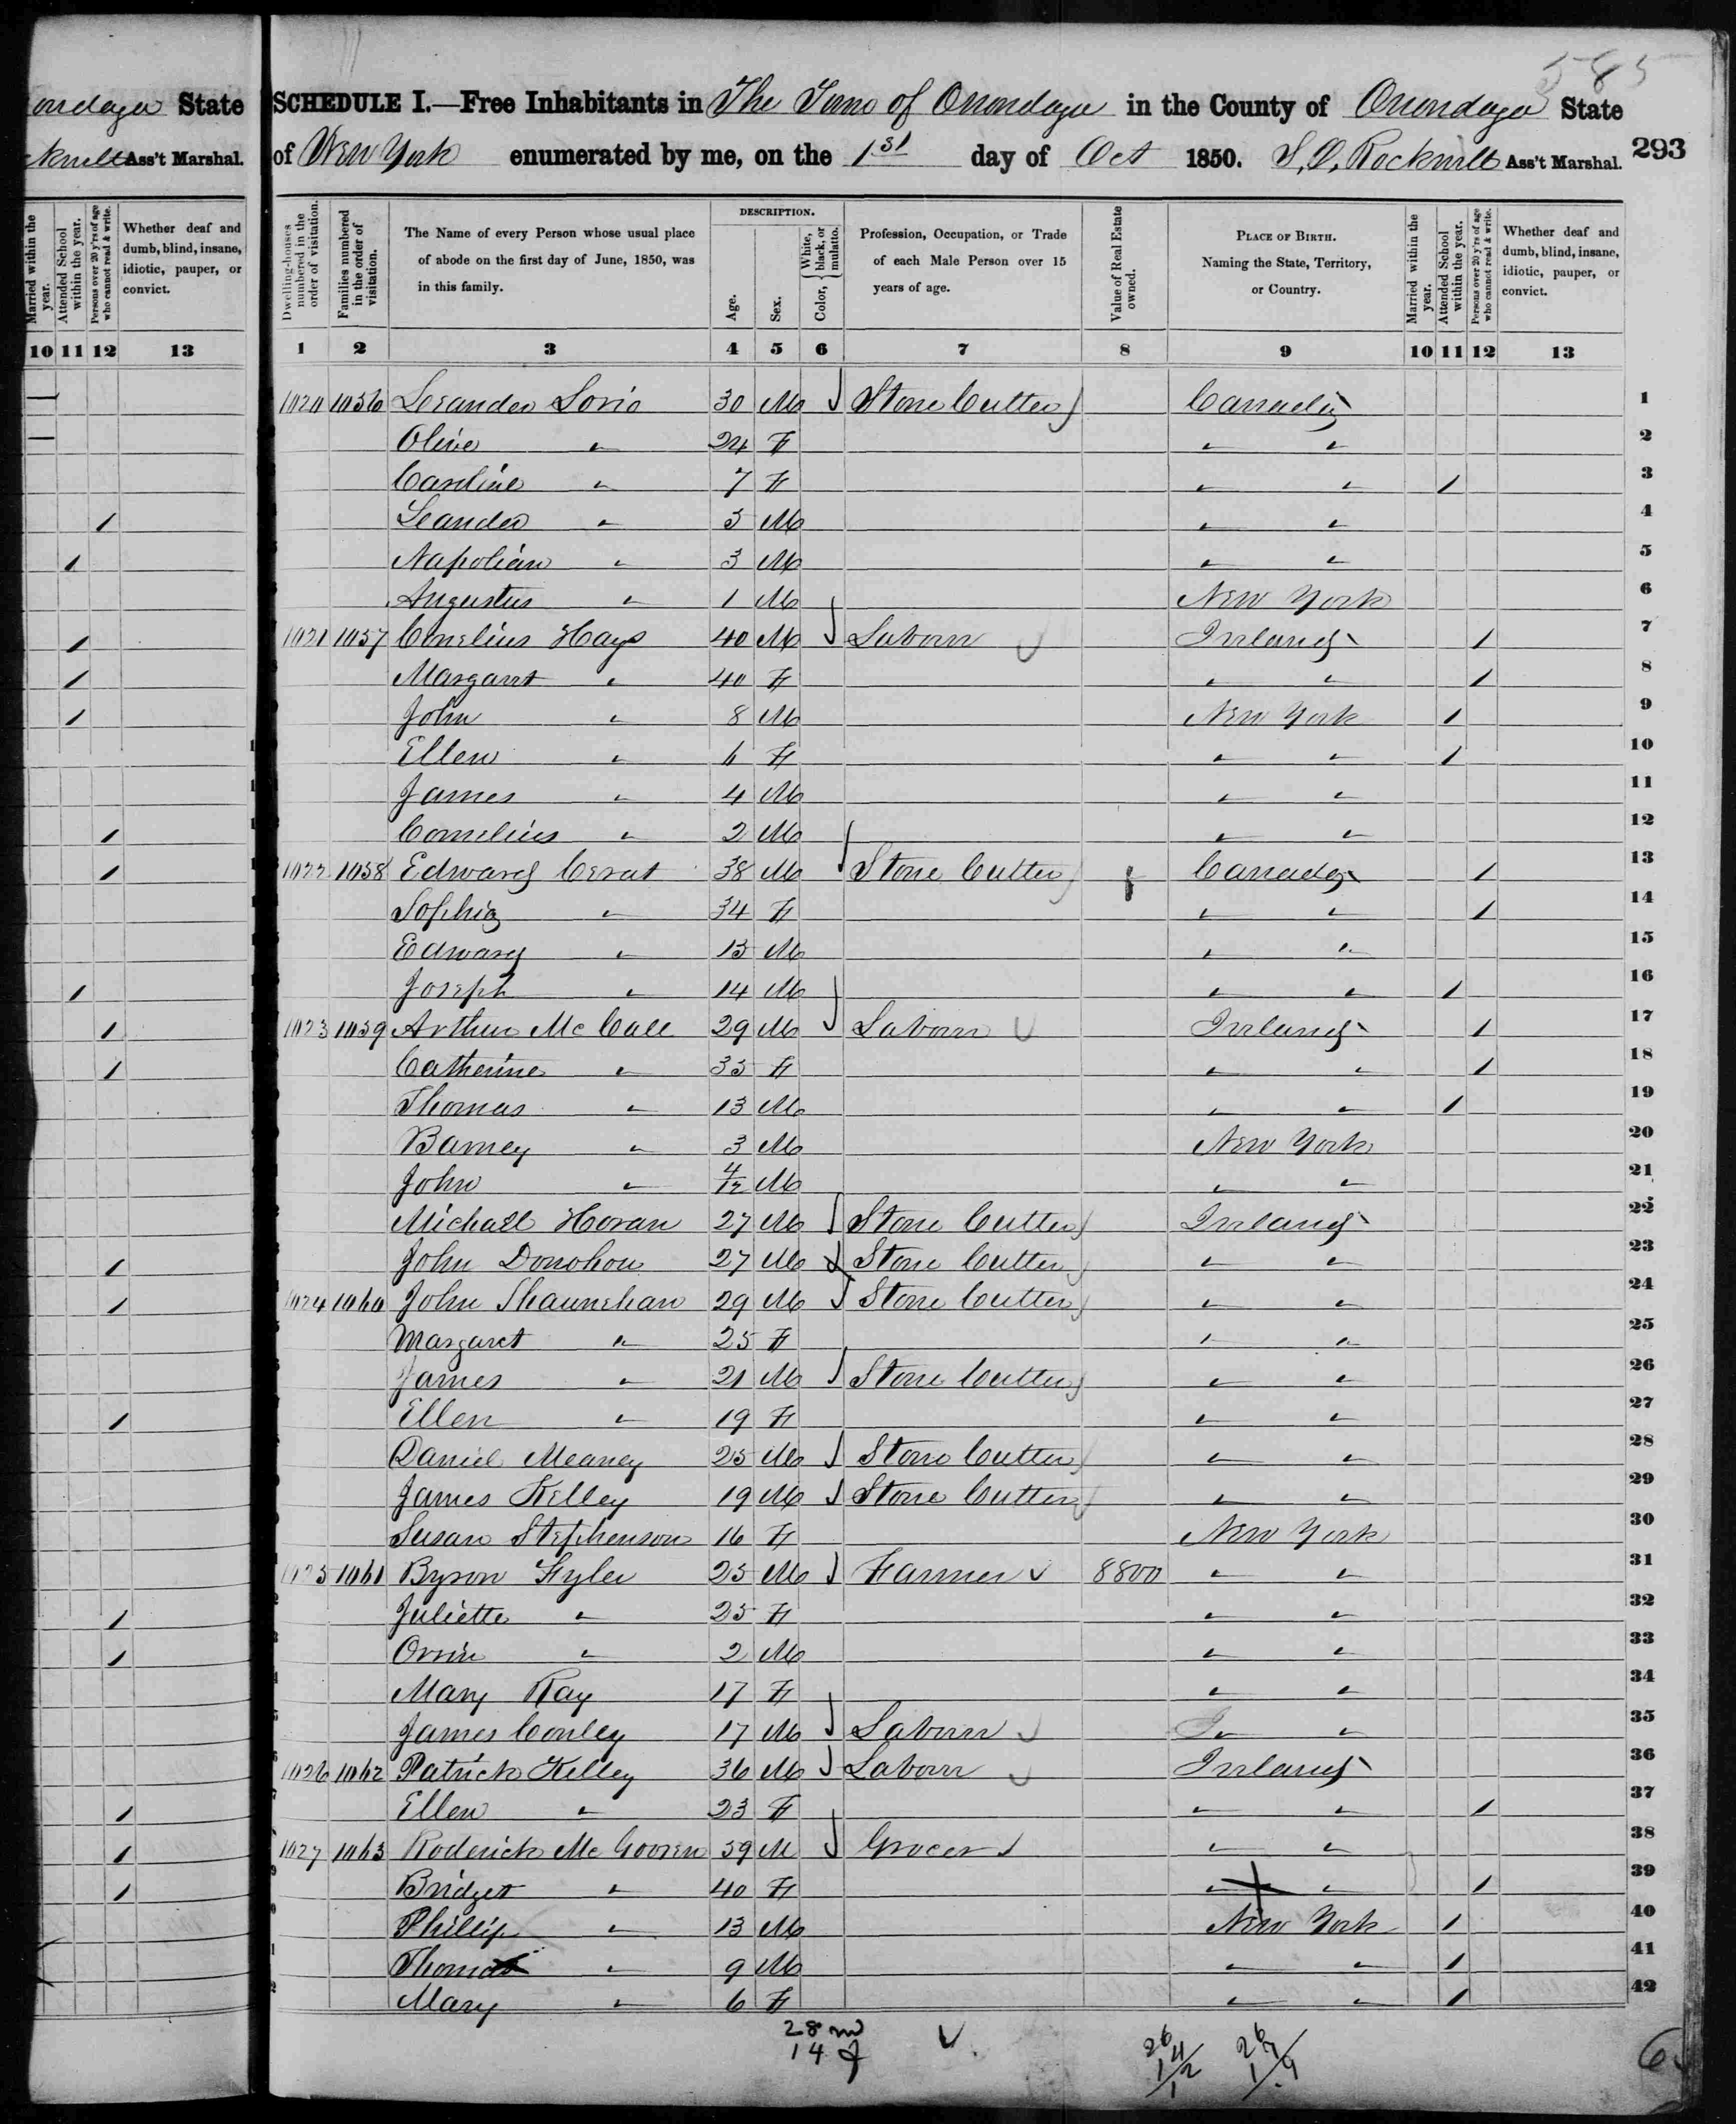 585
ondaga State
ckwell Ass't Marshal.
SCHEDULE I.—Free Inhabitants in The Town of Onondaga in the County of Onondaga State
of New York enumerated by me, on the 1st day of Oct 1850. S. O. Rockwell Ass't Marshal. 293
Married within the year.
Attended School within the year.
Persons over 20 y'rs of age who cannot read & write.
Whether deaf and dumb, blind, insane, idiotic, pauper, or convict.
10 11 12 13
Dwelling-houses numbered in the order of visitation.
Families numbered in the order of visitation.
The Name of every Person whose usual place of abode on the first day of June, 1850, was in this family.
DESCRIPTION.
Age.
Sex.
Color, { White, black, or mulatto.
Profession, Occupation, or Trade of each Male Person over 15 years of age.
Value of Real Estate owned.
PLACE OF BIRTH. Naming the State, Territory, or Country.
Married within the year.
Attended School within the year.
Persons over 20 y'rs of age who cannot read & write.
Whether deaf and dumb, blind, insane, idiotic, pauper, or convict.
1 2 3 4 5 6 7 8 9 10 11 12 13
1020 1056 Leander 30 M Stone Cutter Canada 1
Olive " 24 F " " 2
Caroline " 7 F " " / 3
Leander " 3 M " " 4
Napolian " 3 M " " 5
Augustus " 1 M New York 6
1021 1057 Cornelius Hays 40 M Laborer Ireland / 7
Margaret " 40 F " " / 8
John " 8 M New York / 9
Ellen " 6 F " " / 10
James " 4 M " " 11
Cornelius " 2 M " " 12
1022 1058 Edward Cerat 38 M Stone Cutter Canada / 13
Sophia " 34 F " " / 14
Edward " 15 M " " 15
Joseph " 14 M " " / 16
1023 1059 Arthur Mc Call 29 M Laborer Ireland / 17
Catherine " 35 F " " / 18
Thomas " 13 M " " / 19
Barney " 3 M New York 20
John " 4/12 M " " 21
Michael Horan 27 M Stone Cutter Ireland 22
John Donohou 27 M Stone Cutter " " 23
1024 1060 John Shaunehan 29 M Stone Cutter " " 24
Margaret " 25 F " " 25
James " 21 M Stone Cutter " " 26
Ellen " 19 F " " 27
Daniel Meaney 25 M Stone Cutter " " 28
James Kelley 19 M Stone Cutter " " 29
Susan Stephenson 16 F New York 30
1025 1061 Byron Fyler 25 M Farmer 8800 " " 31
Juliette " 25 F " " 32
Orrin " 2 M " " 33
Mary Ray 17 F " " 34
James Conley 17 M Laborer " " 35
1026 1062 Patrick Kelley 36 M Laborer Ireland 36
Ellen " 23 F " " / 37
1027 1063 Roderick Mc Gooren 39 M Grocer " " 38
Bridget " 40 F " " / 39
Phillip " 13 M New York / 40
Thomas " 9 M " " / 41
Mary " 6 F " " / 42
28 m
14 f